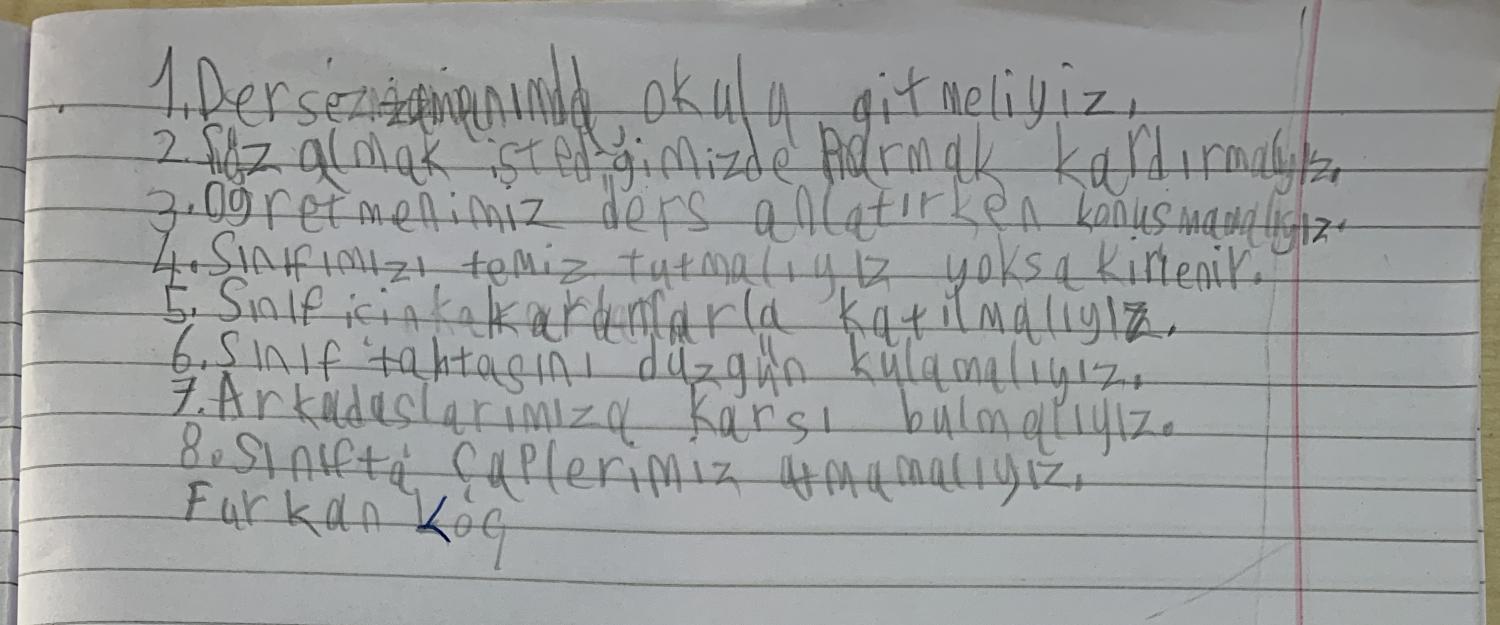 1. Dersezamanında okula gitmeliyiz.
2. Söz almak istediğimizde Parmak kardırmalıyız.
3. Ogretmenimiz ders anlatırken konusmamalıyız.
4. Sınıfımızı temiz tutmalıyız yoksa kirlenir.
5. Sınıf icin kararlarla katılmalıyız.
6. Sınıf tahtasını düzgün kulamalıyız.
7. Arkadaslarımıza karsı bulmalıyız.
8. Sınıfta Çaplerimiz atmamalıyız.
Furkan Koç